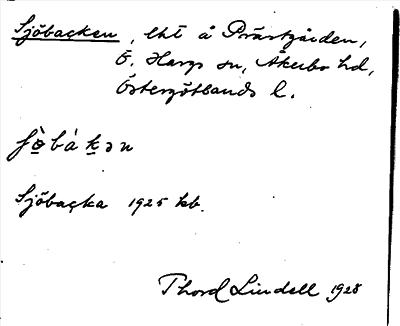 Sjöbacken, lht å Prästgården,
Ö. Hargs sn, Åkerbo hd,
Östergötlands l.
Sjöbacka 1925 kb.
Thord Lindell 1928